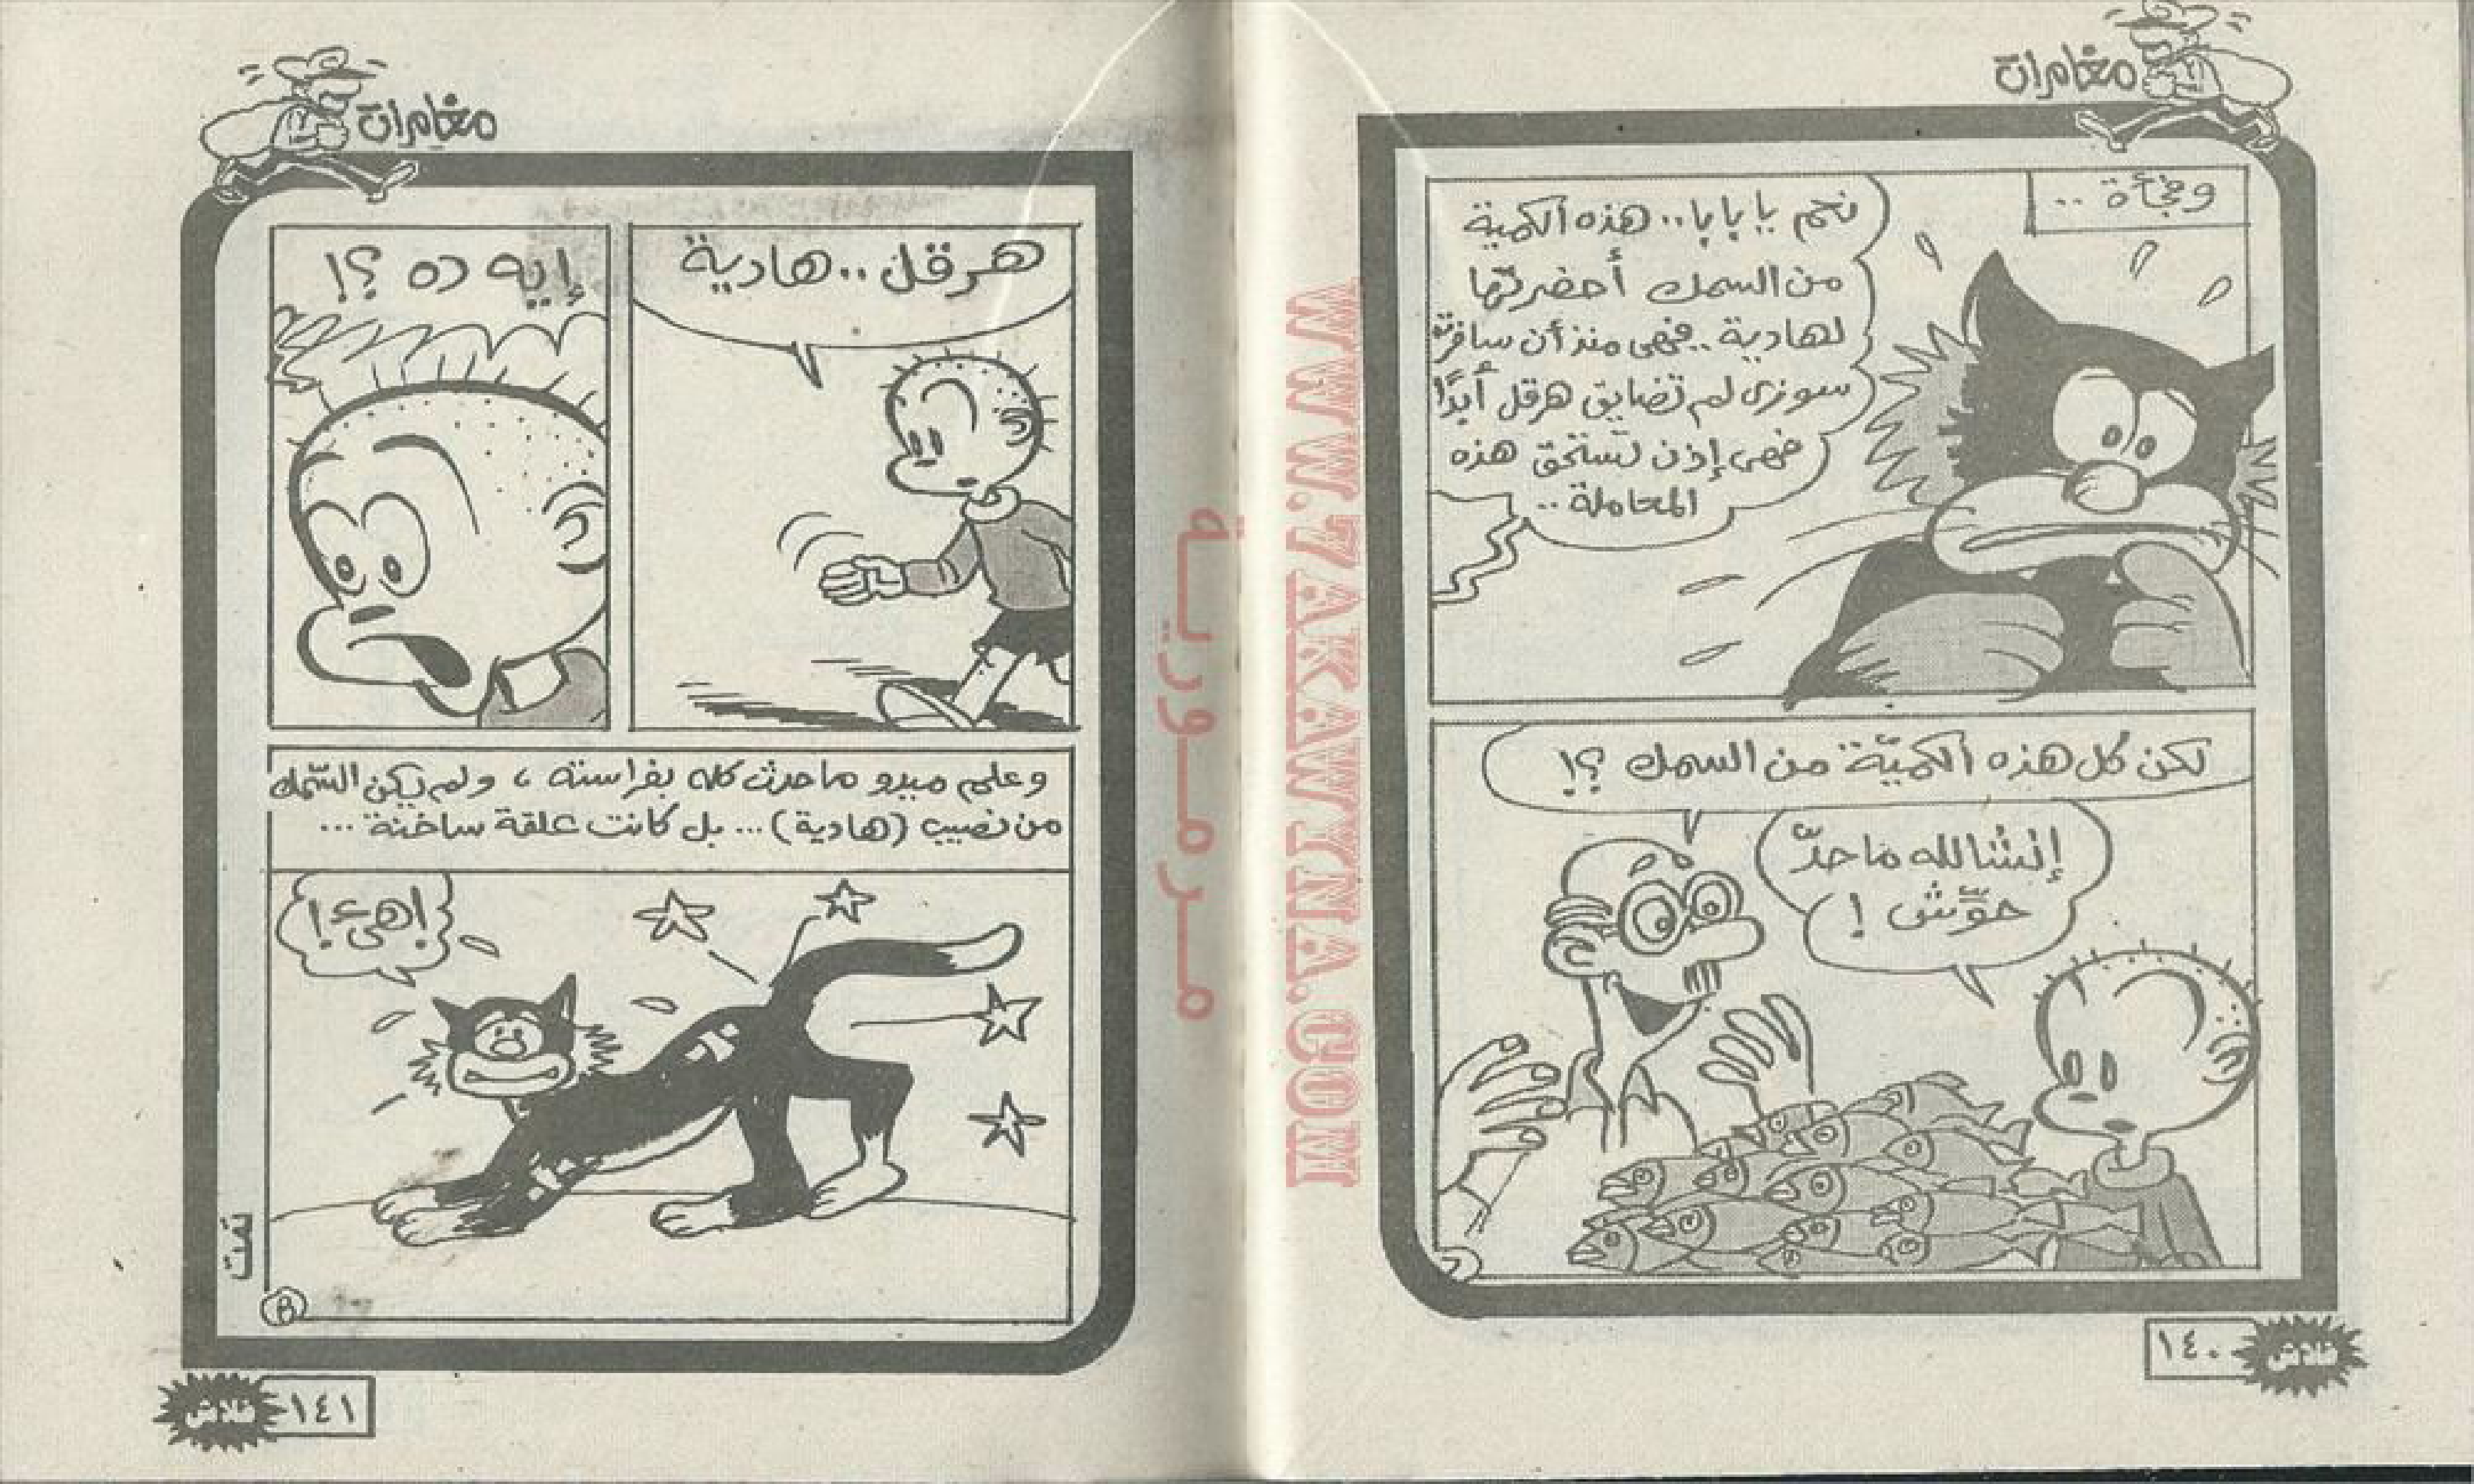 مغامرات
وفجأة ..
نعم يا بابا.. هذه الكمية
من السمك أحضرتها
لهادية .. فهى منذ أن سافرت
سوزى لم تضايق هرقل أبدًا
فهى إذن تستحق هذه
المعاملة ..
لكن كل هذه الكميّة من السمك ؟!
إنشالله ماحدّ
حوّش !
١٤٠
فلاش
مغامرات
هرقل .. هادية
إيه ده ؟!
وعلم ميدو ماحدث كله بفراسته ، ولم يكن السّمك
من نصيب (هادية) ... بل كانت علقة ساخنة ...
!هئ!
تمت
B
١٤١
فلاش
مرمورية
WWW.7AKAWYNA.COM